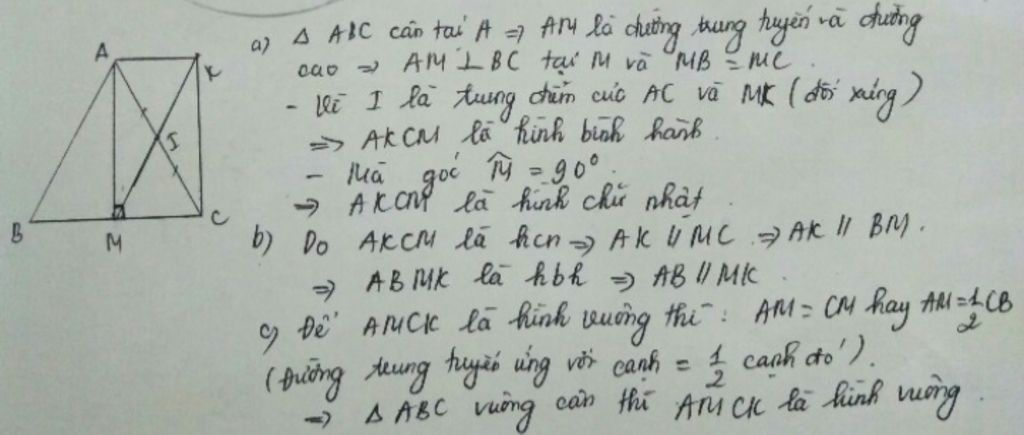 A
K
I
B
M
C
a) Δ ABC cân tại A => AM là đường trung tuyến và đường
cao => AM ⊥ BC tại M và MB = MC.
- Vì I là trung điểm của AC và MK (đối xứng)
=> AKCM là hình bình hành.
- Mà góc M̂ = 90°.
=> AKCM là hình chữ nhật
b) Do AKCM là hcn => AK // MC => AK // BM.
=> ABMK là hbh => AB // MK.
c) Để AMCK là hình vuông thì: AM = CM hay AM = 1/2 CB
(Đường trung tuyến ứng với cạnh = 1/2 cạnh đó).
=> Δ ABC vuông cân thì AMCK là hình vuông.